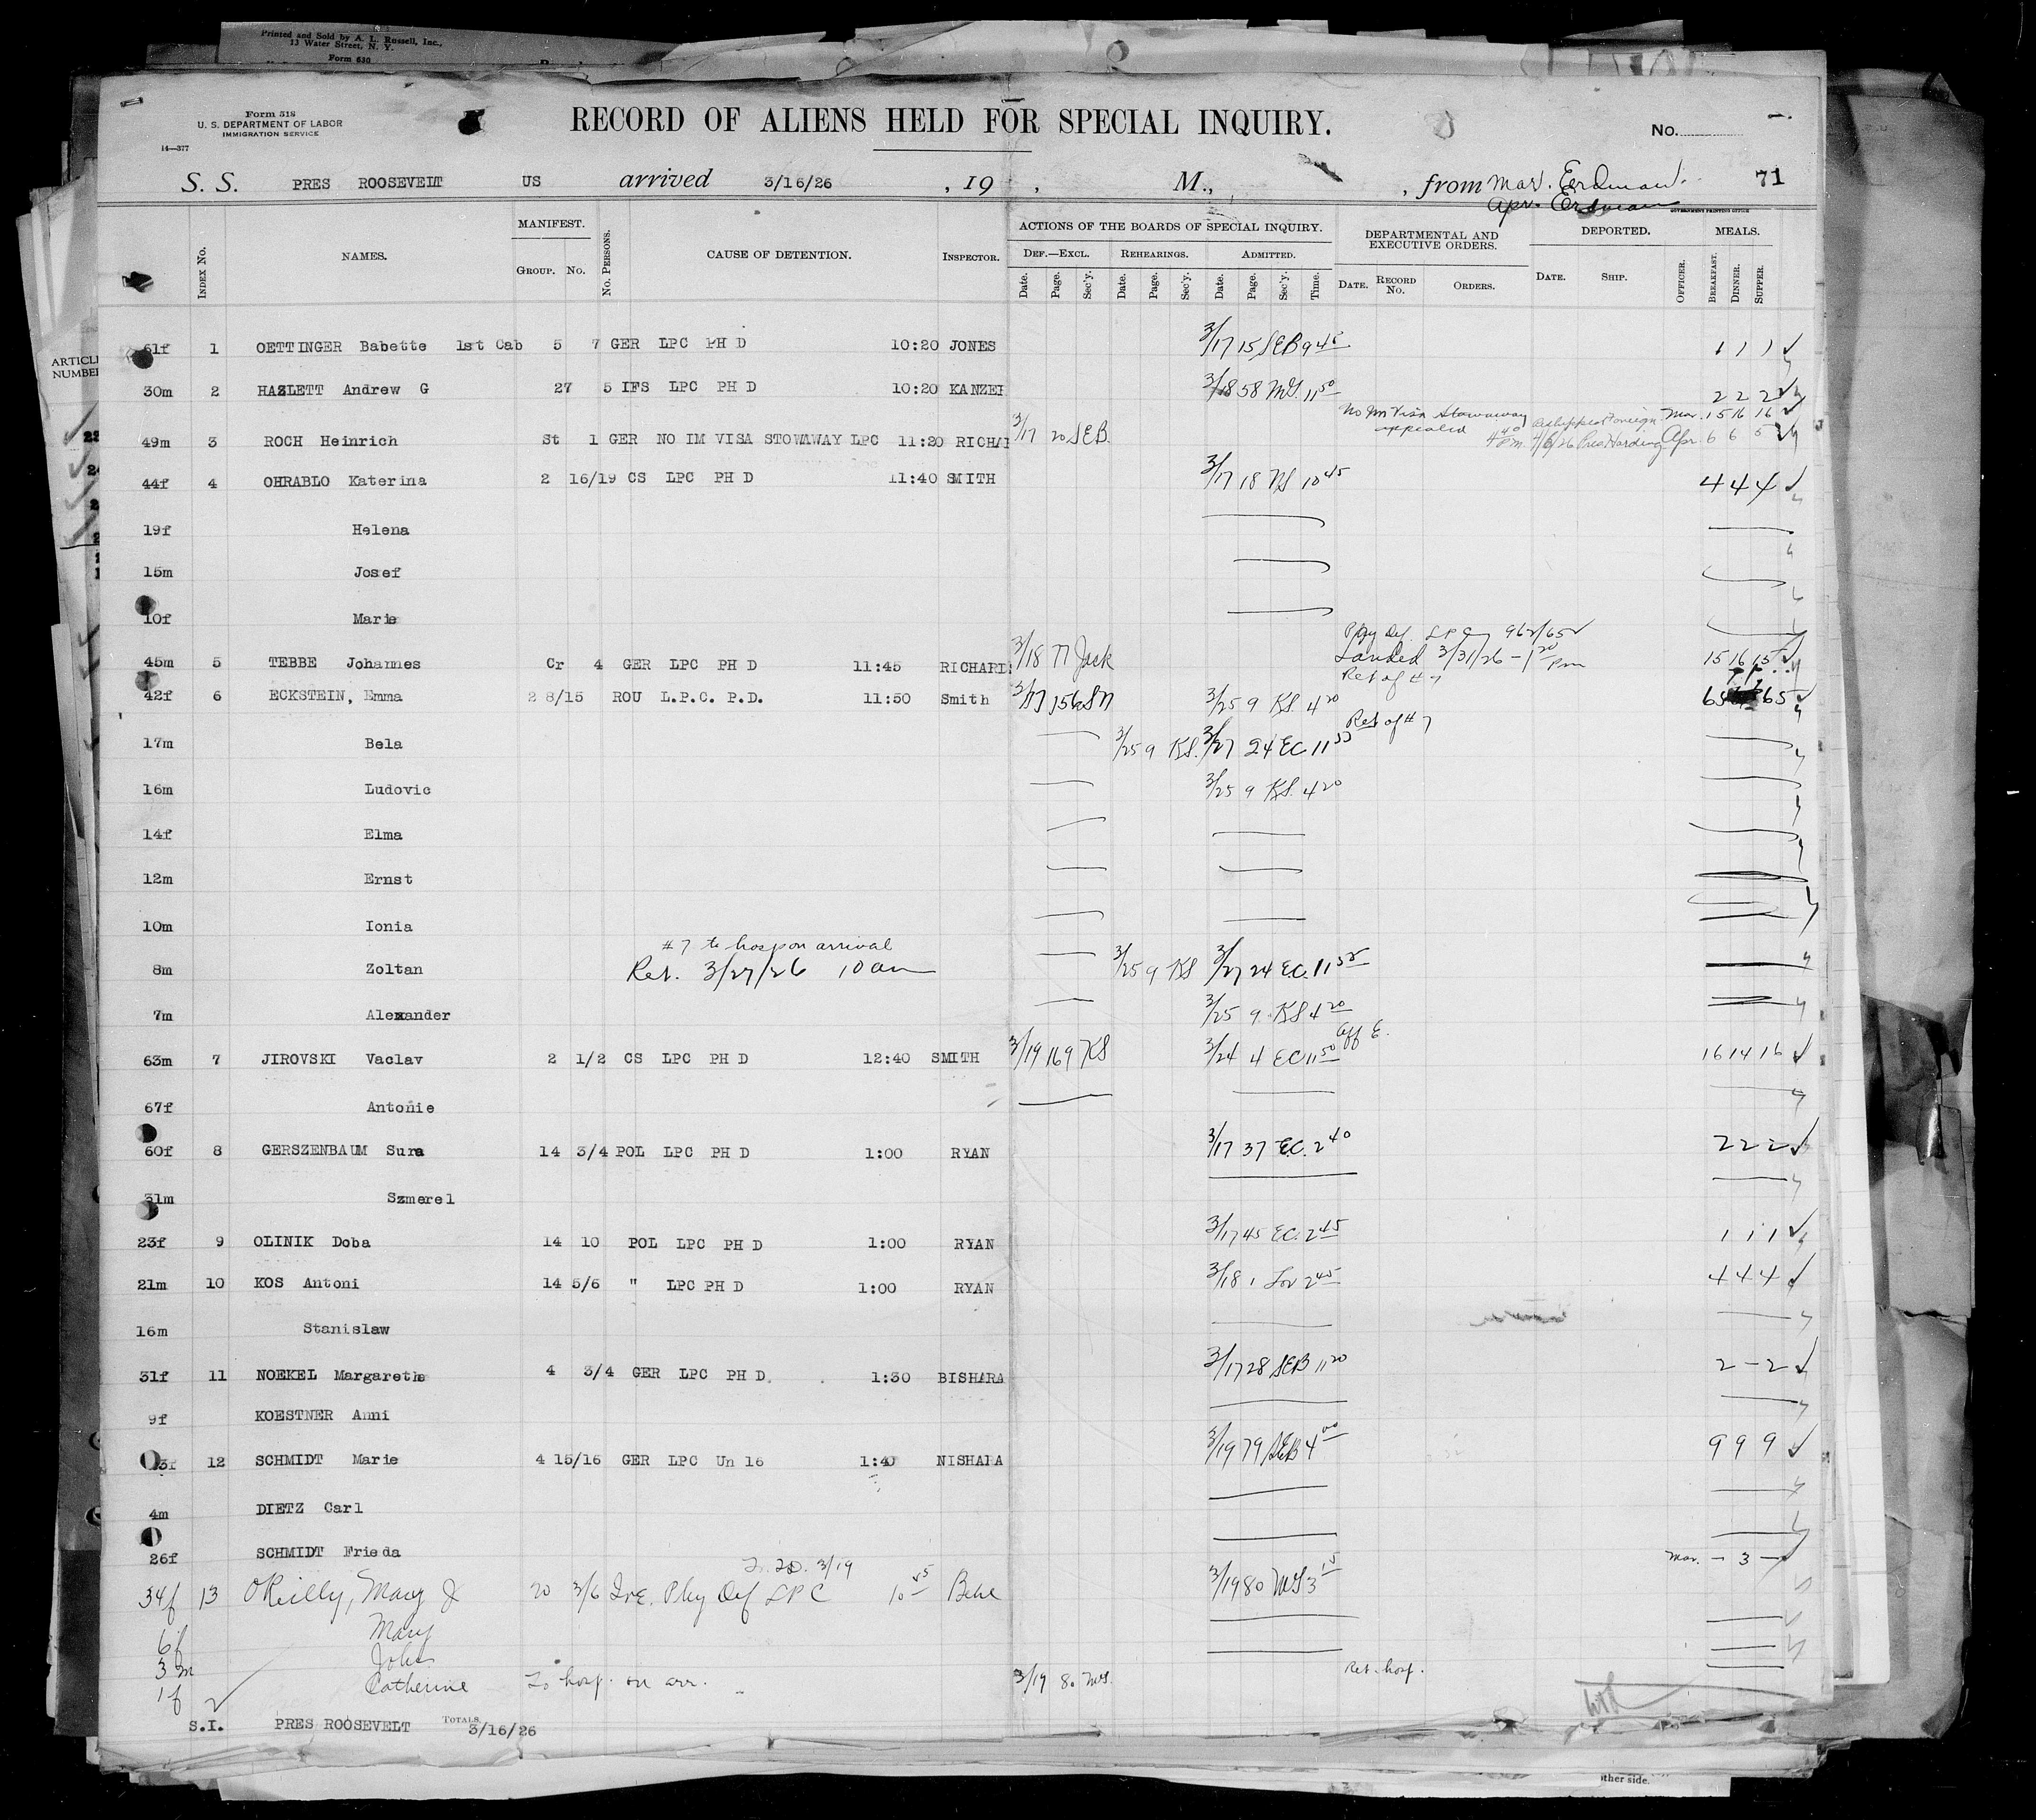 Printed and Sold by A. L. Russell, Inc.,
13 Water Street, N. Y.
Form 630
Form 518
U. S. DEPARTMENT OF LABOR
IMMIGRATION SERVICE
14—377
RECORD OF ALIENS HELD FOR SPECIAL INQUIRY.
No.
S. S. PRES ROOSEVELT US arrived 3/16/26 , 19 , M., , from Mar. Erdman. 71
Apr. Erdman
GOVERNMENT PRINTING OFFICE
INDEX No. NAMES. MANIFEST. GROUP. No. No. PERSONS. CAUSE OF DETENTION. INSPECTOR. ACTIONS OF THE BOARDS OF SPECIAL INQUIRY. DEPARTMENTAL AND EXECUTIVE ORDERS. DEPORTED. MEALS.
DEF.—EXCL. REHEARINGS. ADMITTED.
Date. Page. Sec'y. Date. Page. Sec'y. Date. Page. Sec'y. Time. DATE. RECORD No. ORDERS. DATE. SHIP. OFFICER. BREAKFAST. DINNER. SUPPER.
ARTICL
NUMBE
61f 1 OETTINGER Babette 1st Cab 5 7 GER LPC PH D 10:20 JONES 3/17 15 SEB 9 45 1 1 1
30m 2 HAZLETT Andrew G 27 5 IFS LPC PH D 10:20 KANZEI 3/18 58 MG. 11 50 2 2 2
No Im Visa Stowaway Mar. 15 16 16
49m 3 ROCH Heinrich St 1 GER NO IM VISA STOWAWAY LPC 11:20 RICHA 3/17 20 SEB. appealed Reshipped Foreign 4 40 Pm. 4/6/26 Pres Harding Apr. 6 6 5
44f 4 OHRABLO Katerina 2 16/19 CS LPC PH D 11:40 SMITH 3/17 18 10 45 4 4 4
19f Helena
15m Josef
10f Marie
Phy Def. LPC
45m 5 TEBBE Johannes Cr 4 GER LPC PH D 11:45 RICHARD 3/18 77 Jack Landed 3/31/26 - 1 20 Pm 15 16 15
Ret of # 7
42f 6 ECKSTEIN, Emma 2 8/15 ROU L.P.C. P.D. 11:50 Smith 3/17 156 SN 3/25 9 KS. 4 20 65 65
17m Bela 3/25 9 KS. 3/27 24 EC 11 55 Ret of # 7
16m Ludovic 3/25 9 KS. 4 20
14f Elma
12m Ernst
10m Ionia
# 7 to hosp on arrival
8m Zoltan Ret. 3/27/26 10 am 3/25 9 KS 3/27 24 EC. 11 55
7m Alexander 3/25 9 KS 4 20
63m 7 JIROVSKI Vaclav 2 1/2 CS LPC PH D 12:40 SMITH 3/19 169 KS 3/24 4 EC 11 50 16 14 16
67f Antonie
60f 8 GERSZENBAUM Sura 14 3/4 POL LPC PH D 1:00 RYAN 3/17 37 EC. 2 40 2 2 2
31m Szmerel
23f 9 OLINIK Doba 14 10 POL LPC PH D 1:00 RYAN 3/17 45 EC. 2 45 1 1 1
21m 10 KOS Antoni 14 5/6 " LPC PH D 1:00 RYAN 3/18 1 2 45 4 4 4
16m Stanislaw
31f 11 NOEKEL Margarethe 4 3/4 GER LPC PH D. 1:30 BISHARA 3/17 28 SEB 11 20 2 - 2
9f KOESTNER Anni
3f 12 SCHMIDT Marie 4 15/16 GER LPC Un 16 1:40 NISHAIA 3/19 79 SEB 4 00 9 9 9
4m DIETZ Carl
26f SCHMIDT Frieda
3/19 Mar. - 3 -
34f 13 OReilly, Mary J 20 3/6 Ire. Phy Def LPC 10 45 3/19 80 MG 3 15
6f Mary
3m John
1f Catherine To hosp. on arr. 3/19 80 MG. Ret. hosp.
S.I. PRES ROOSEVELT TOTALS. 3/16/26
ther side.